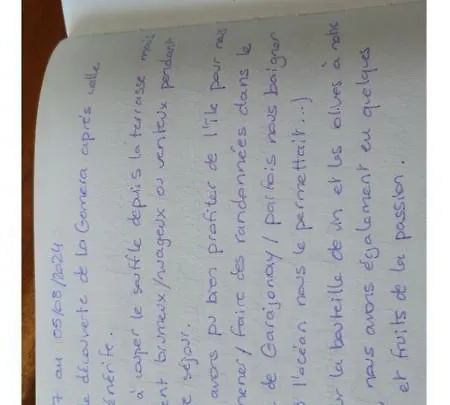 7 au 05/08/2024
e découverte de la Gomera après celle
énérite.
à couper le souffle depuis la terrasse mais
ent brumeux/nuageux ou venteux pendant
e séjour.
avons pu bien profiter de l'île pour nous
mener/faire des randonnées dans le
de Garajonay/parfois nous baigner
l'océan nous le permettait...)
r la bouteille de vin et les olives à notre
nous avons également eu quelques
et fruits de la passion.